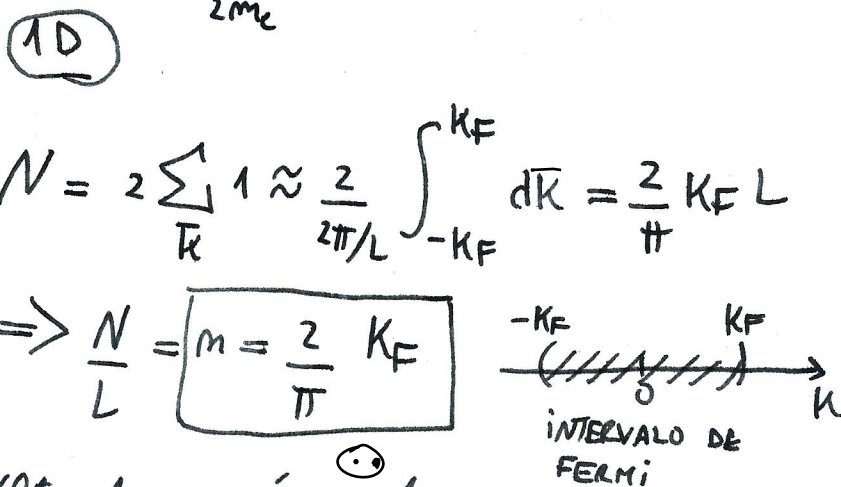 2me
1D
N = 2 ∑_k̄ 1 ≈ 2/(2π/L) ∫_{-KF}^{KF} dk̄ = 2/π KF L
=> N/L = n = 2/π KF
-KF KF
0 K
INTERVALO DE
FERMI